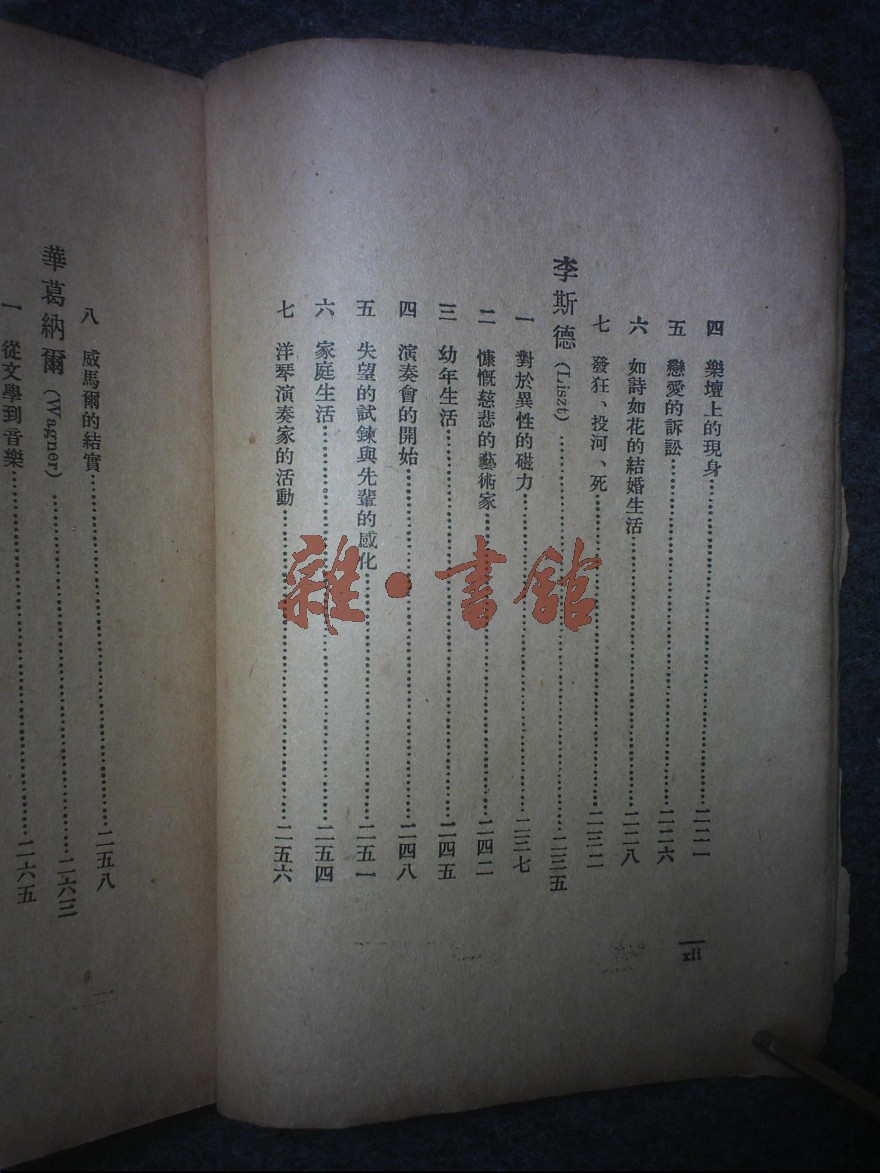 四 樂壇上的現身……二二一
五 戀愛的訴訟……二二六
六 如詩如花的結婚生活……二二八
七 發狂、投河、死……二三二
李斯德(Liszt)……二三五
一 對於異性的磁力……二三七
二 慷慨慈悲的藝術家……二四二
三 幼年生活……二四五
四 演奏會的開始……二四八
五 失望的試鍊與先輩的感化……二五一
六 家庭生活……二五四
七 洋琴演奏家的活動……二五六
xii
八 威馬爾的結實……二五八
華葛納爾(Wagner)……二六三
一 從文學到音樂……二六五
雜·書館